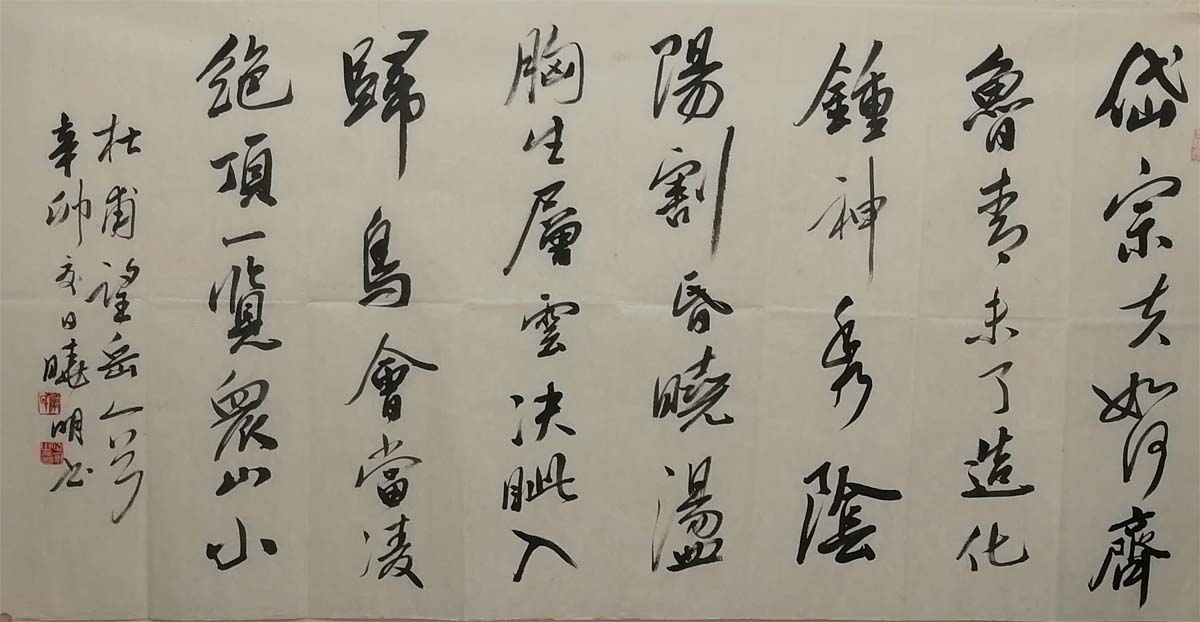 岱宗夫如何齊
魯青未了造化
鍾神秀陰
陽割昏曉盪
胸生層雲決眦入
歸鳥會當凌
絕頂一覽眾山小
杜甫望岳一首
辛卯夏日曉明书